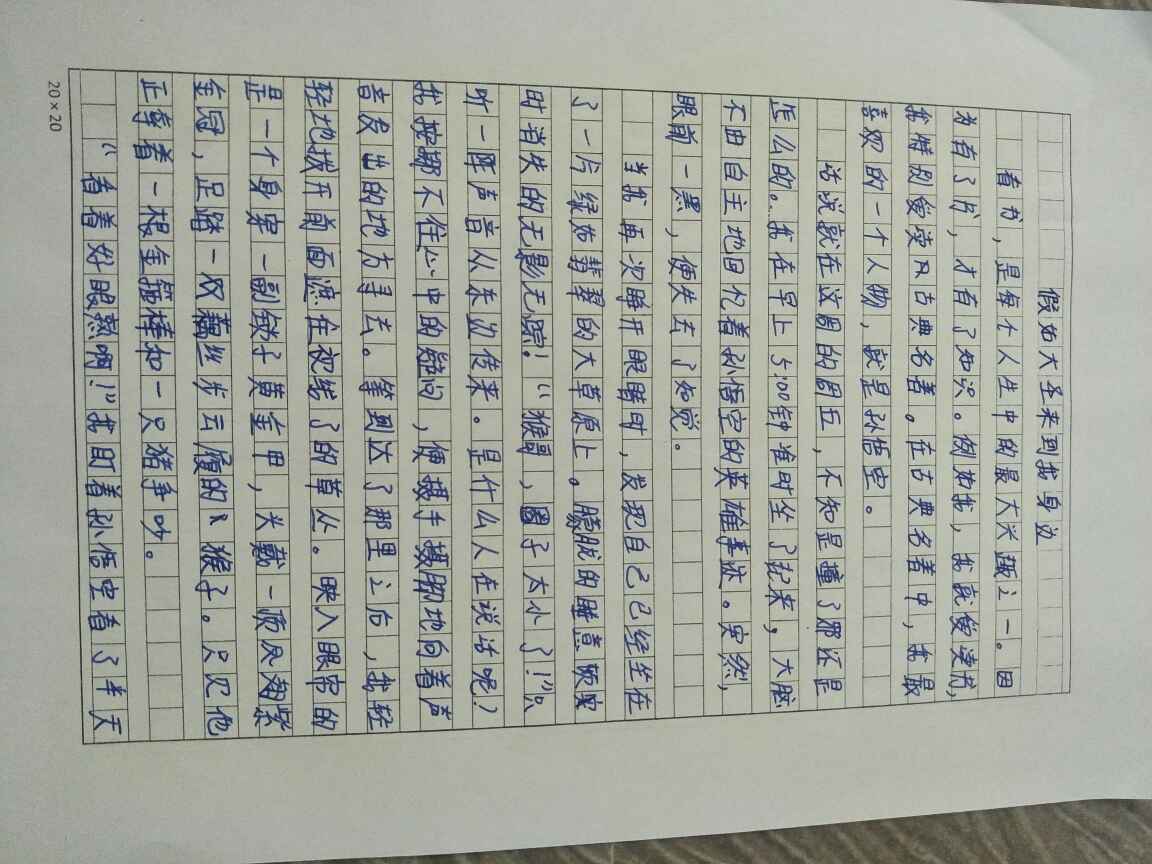 假如大圣来到我身边
看书，是每个人生中的最大兴趣之一。因
为有了书，才有了知识。例如我，我就爱读书，
我特别爱读风古典名著。在古典名著中，我最
喜欢的一个人物，就是孙悟空。
话说就在这周的周五，不知是撞了邪还是
怎么的。我在早上5:00钟准时坐了起来，大脑
不由自主地回忆着孙悟空的英雄事迹。突然，
眼前一黑，便失去了知觉。
当我再次睁开眼睛时，发现自己已经坐在
了一片绿油翡翠的大草原上。朦胧的睡意顿
时消失的无影无踪！“猴哥，圈子太小了！”只
听一阵声音从东边传来。是什么人在说话呢？
我按捺不住心中的疑问，便摄手摄脚地向着声
音发出的地方寻去。等到达了那里之后，我轻
轻地拨开前面遮住视线了的草丛。映入眼帘的
是一个身穿一副锁子黄金甲，头戴一顶凤翅紫
金冠，足踏一双藕丝步云履的猴子。只见他
正拿着一根金箍棒和一只猪争吵。
“看着好眼熟啊！”我盯着孙悟空看了半天
20×20